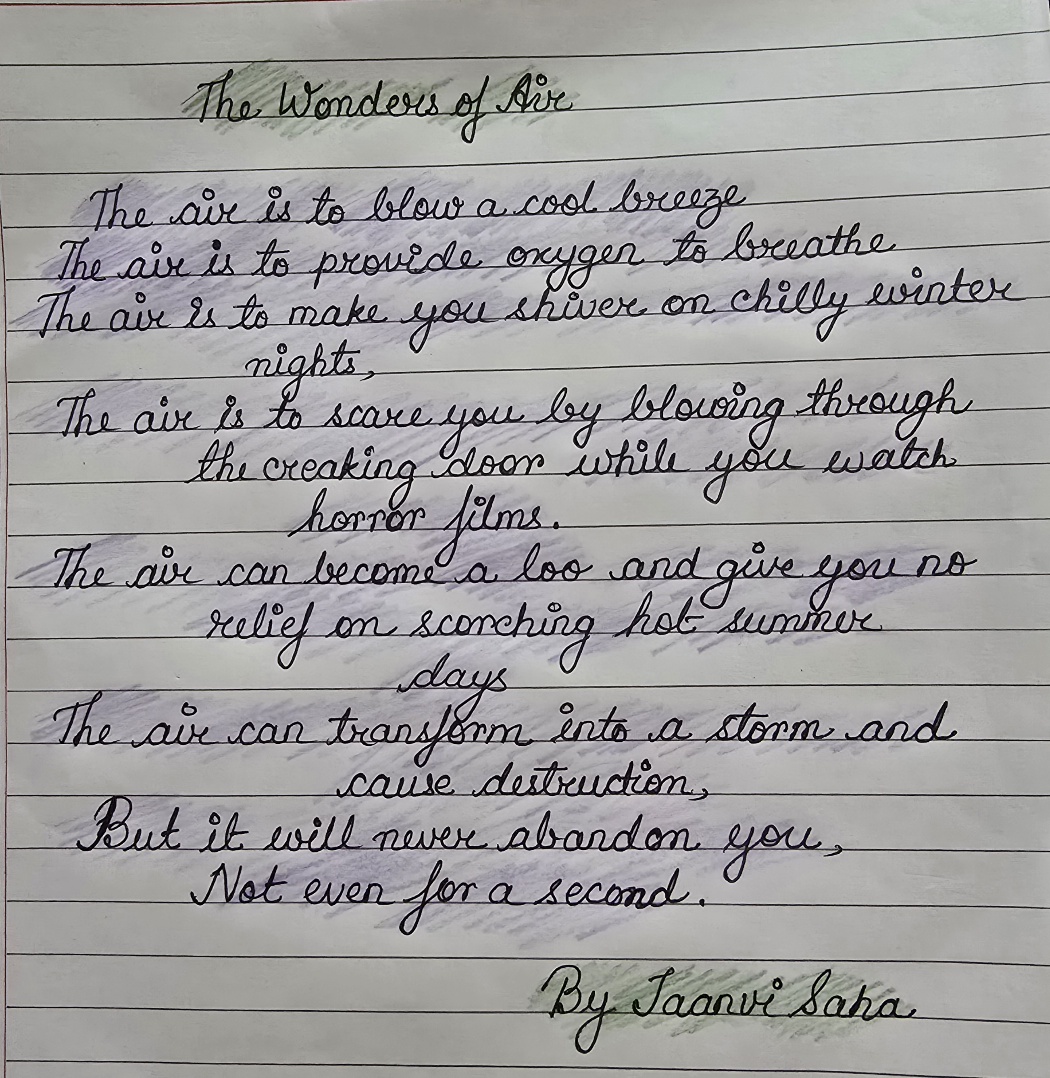 The Wonders of Air
The air is to blow a cool breeze
The air is to provide oxygen to breathe
The air is to make you shiver on chilly winter
nights,
The air is to scare you by blowing through
the creaking door while you watch
horror films.
The air can become a loo and give you no
relief on scorching hot summer
days
The air can transform into a storm and
cause destruction,
But it will never abandon you,
Not even for a second.
By Jaanvi Saha